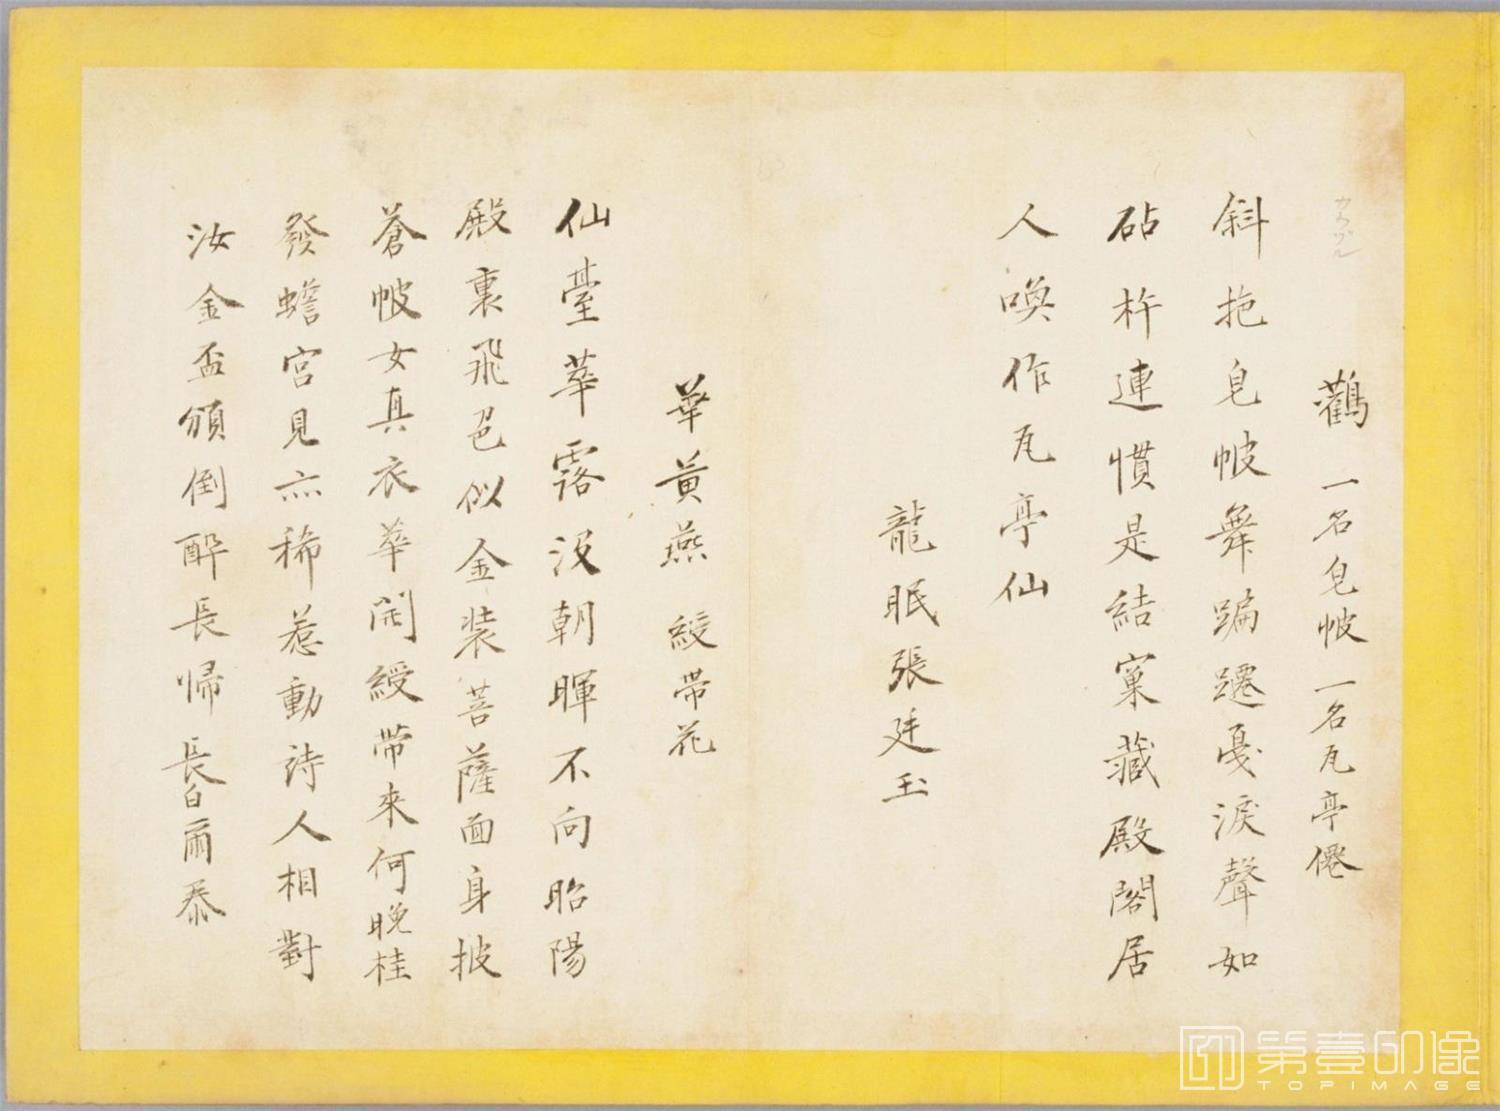 鸛 一名皂帔 一名瓦亭僊
斜拖皂帔舞蹁躚戛淚聲如
砧杵連慣是結窠藏殿閣居
人喚作瓦亭仙
龍眠張廷玉
華黃燕 綬帶花
仙臺華露沒朝暉不向昭陽
殿裏飛色似金裝菩薩面身披
蒼帔女真衣華開綬帶來何晚桂
發蟾宮見亦稀惹動詩人相對
汝金盃頒倒醉長歸 長白爾泰
第壹印像
TOPIMAGE